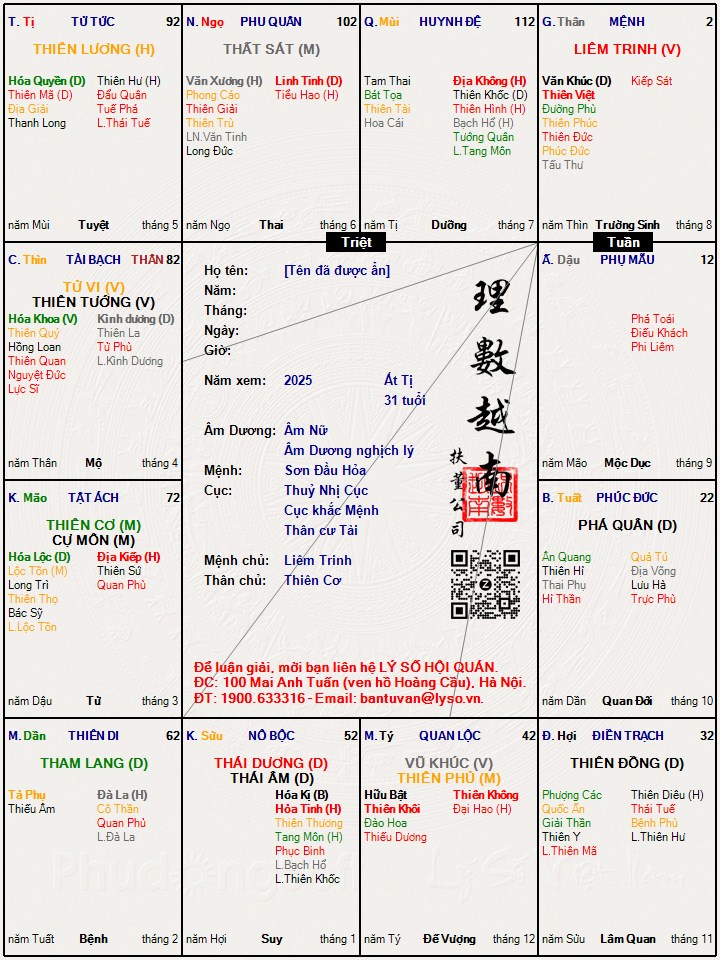 T. Tị TỬ TỨC 92
THIÊN LƯƠNG (H)
Hóa Quyền (D) Thiên Hư (H)
Thiên Mã (D) Đẩu Quân
Địa Giải Tuế Phá
Thanh Long L.Thái Tuế
năm Mùi Tuyệt tháng 5
N. Ngọ PHU QUÂN 102
THẤT SÁT (M)
Văn Xương (H) Linh Tinh (D)
Phong Cáo Tiểu Hao (H)
Thiên Giải
Thiên Trù
LN.Văn Tinh
Long Đức
năm Ngọ Thai tháng 6
Q. Mùi HUYNH ĐỆ 112
Tam Thai Địa Không (H)
Bát Tọa Thiên Khốc (D)
Thiên Tài Thiên Hình (H)
Hoa Cái Bạch Hổ (H)
Tướng Quân
L.Tang Môn
năm Tị Dưỡng tháng 7
G. Thân MỆNH 2
LIÊM TRINH (V)
Văn Khúc (D) Kiếp Sát
Thiên Việt
Đường Phù
Thiên Phúc
Thiên Đức
Phúc Đức
Tấu Thư
năm Thìn Trường Sinh tháng 8
Triệt
Tuần
C. Thìn TÀI BẠCH THÂN 82
TỬ VI (V)
THIÊN TƯỚNG (V)
Hóa Khoa (V) Kình dương (D)
Thiên Quý Thiên La
Hồng Loan Tử Phù
Thiên Quan L.Kình Dương
Nguyệt Đức
Lực Sĩ
năm Thân Mộ tháng 4
Họ tên: [Tên đã được ẩn]
Năm:
Tháng:
Ngày:
Giờ:
Năm xem: 2025 Ất Tị
31 tuổi
Âm Dương: Âm Nữ
Âm Dương nghịch lý
Mệnh: Sơn Đầu Hỏa
Cục: Thuỷ Nhị Cục
Cục khắc Mệnh
Thân cư Tài
Mệnh chủ: Liêm Trinh
Thân chủ: Thiên Cơ
理數越南
扶董公司
Để luận giải, mời bạn liên hệ LÝ SỐ HỘI QUÁN.
ĐC: 100 Mai Anh Tuấn (ven hồ Hoàng Cầu), Hà Nội.
ĐT: 1900.633316 - Email: bantuvan@lyso.vn.
Ấ. Dậu PHỤ MẪU 12
Phá Toái
Điếu Khách
Phi Liêm
năm Mão Mộc Dục tháng 9
K. Mão TẬT ÁCH 72
THIÊN CƠ (M)
CỰ MÔN (M)
Hóa Lộc (D) Địa Kiếp (H)
Lộc Tồn (M) Thiên Sứ
Long Trì Quan Phù
Thiên Thọ
Bác Sỹ
L.Lộc Tồn
năm Dậu Tử tháng 3
B. Tuất PHÚC ĐỨC 22
PHÁ QUÂN (D)
Ân Quang Quả Tú
Thiên Hỉ Địa Võng
Thai Phụ Lưu Hà
Hỉ Thần Trực Phù
năm Dần Quan Đới tháng 10
M. Dần THIÊN DI 62
THAM LANG (D)
Tả Phụ Đà La (H)
Thiếu Âm Cô Thần
Quan Phủ
L.Đà La
năm Tuất Bệnh tháng 2
K. Sửu NÔ BỘC 52
THÁI DƯƠNG (D)
THÁI ÂM (D)
Hóa Kị (B)
Hỏa Tinh (H)
Thiên Thương
Tang Môn (H)
Phục Binh
L.Bạch Hổ
L.Thiên Khốc
năm Hợi Suy tháng 1
M. Tý QUAN LỘC 42
VŨ KHÚC (V)
THIÊN PHỦ (M)
Hữu Bật Thiên Không
Thiên Khôi Đại Hao (H)
Đào Hoa
Thiếu Dương
năm Tý Đế Vượng tháng 12
Đ. Hợi ĐIỀN TRẠCH 32
THIÊN ĐỒNG (D)
Phượng Các Thiên Diêu (H)
Quốc Ấn Thái Tuế
Giải Thần Bệnh Phù
Thiên Y L.Thiên Hư
L.Thiên Mã
năm Sửu Lâm Quan tháng 11